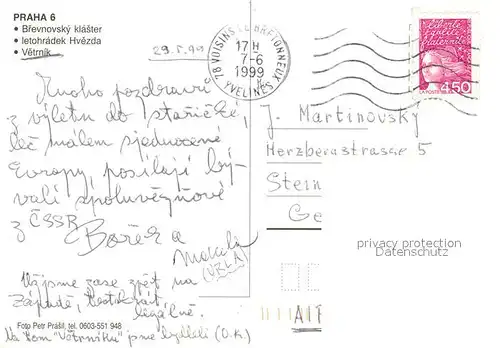 PRAHA 6
• Břevnovský klášter
• letohrádek Hvězda
• Větrník
29.5.99
78 VOISINS LE BRETONNEUX
17 H
7-6
1999
YVELINES
liberté
égalité
fraternité
LA POSTE
4,50
Mnoho pozdravů
z výletu do stařičké,
leč málem sjednocené
Evropy, posílají bý-
valí spoluvězňové
z ČSSR
Bořek a
J. Martinovsky
Herzbernstrasse 5
Stein
Ge
privacy protection
Datenschutz
zase zpět na
Západě, tentokrát
legálně.
Foto Petr Prášil, tel. 0603-551 948
Na tom "Větrníku" jsme bydleli (O.K.)